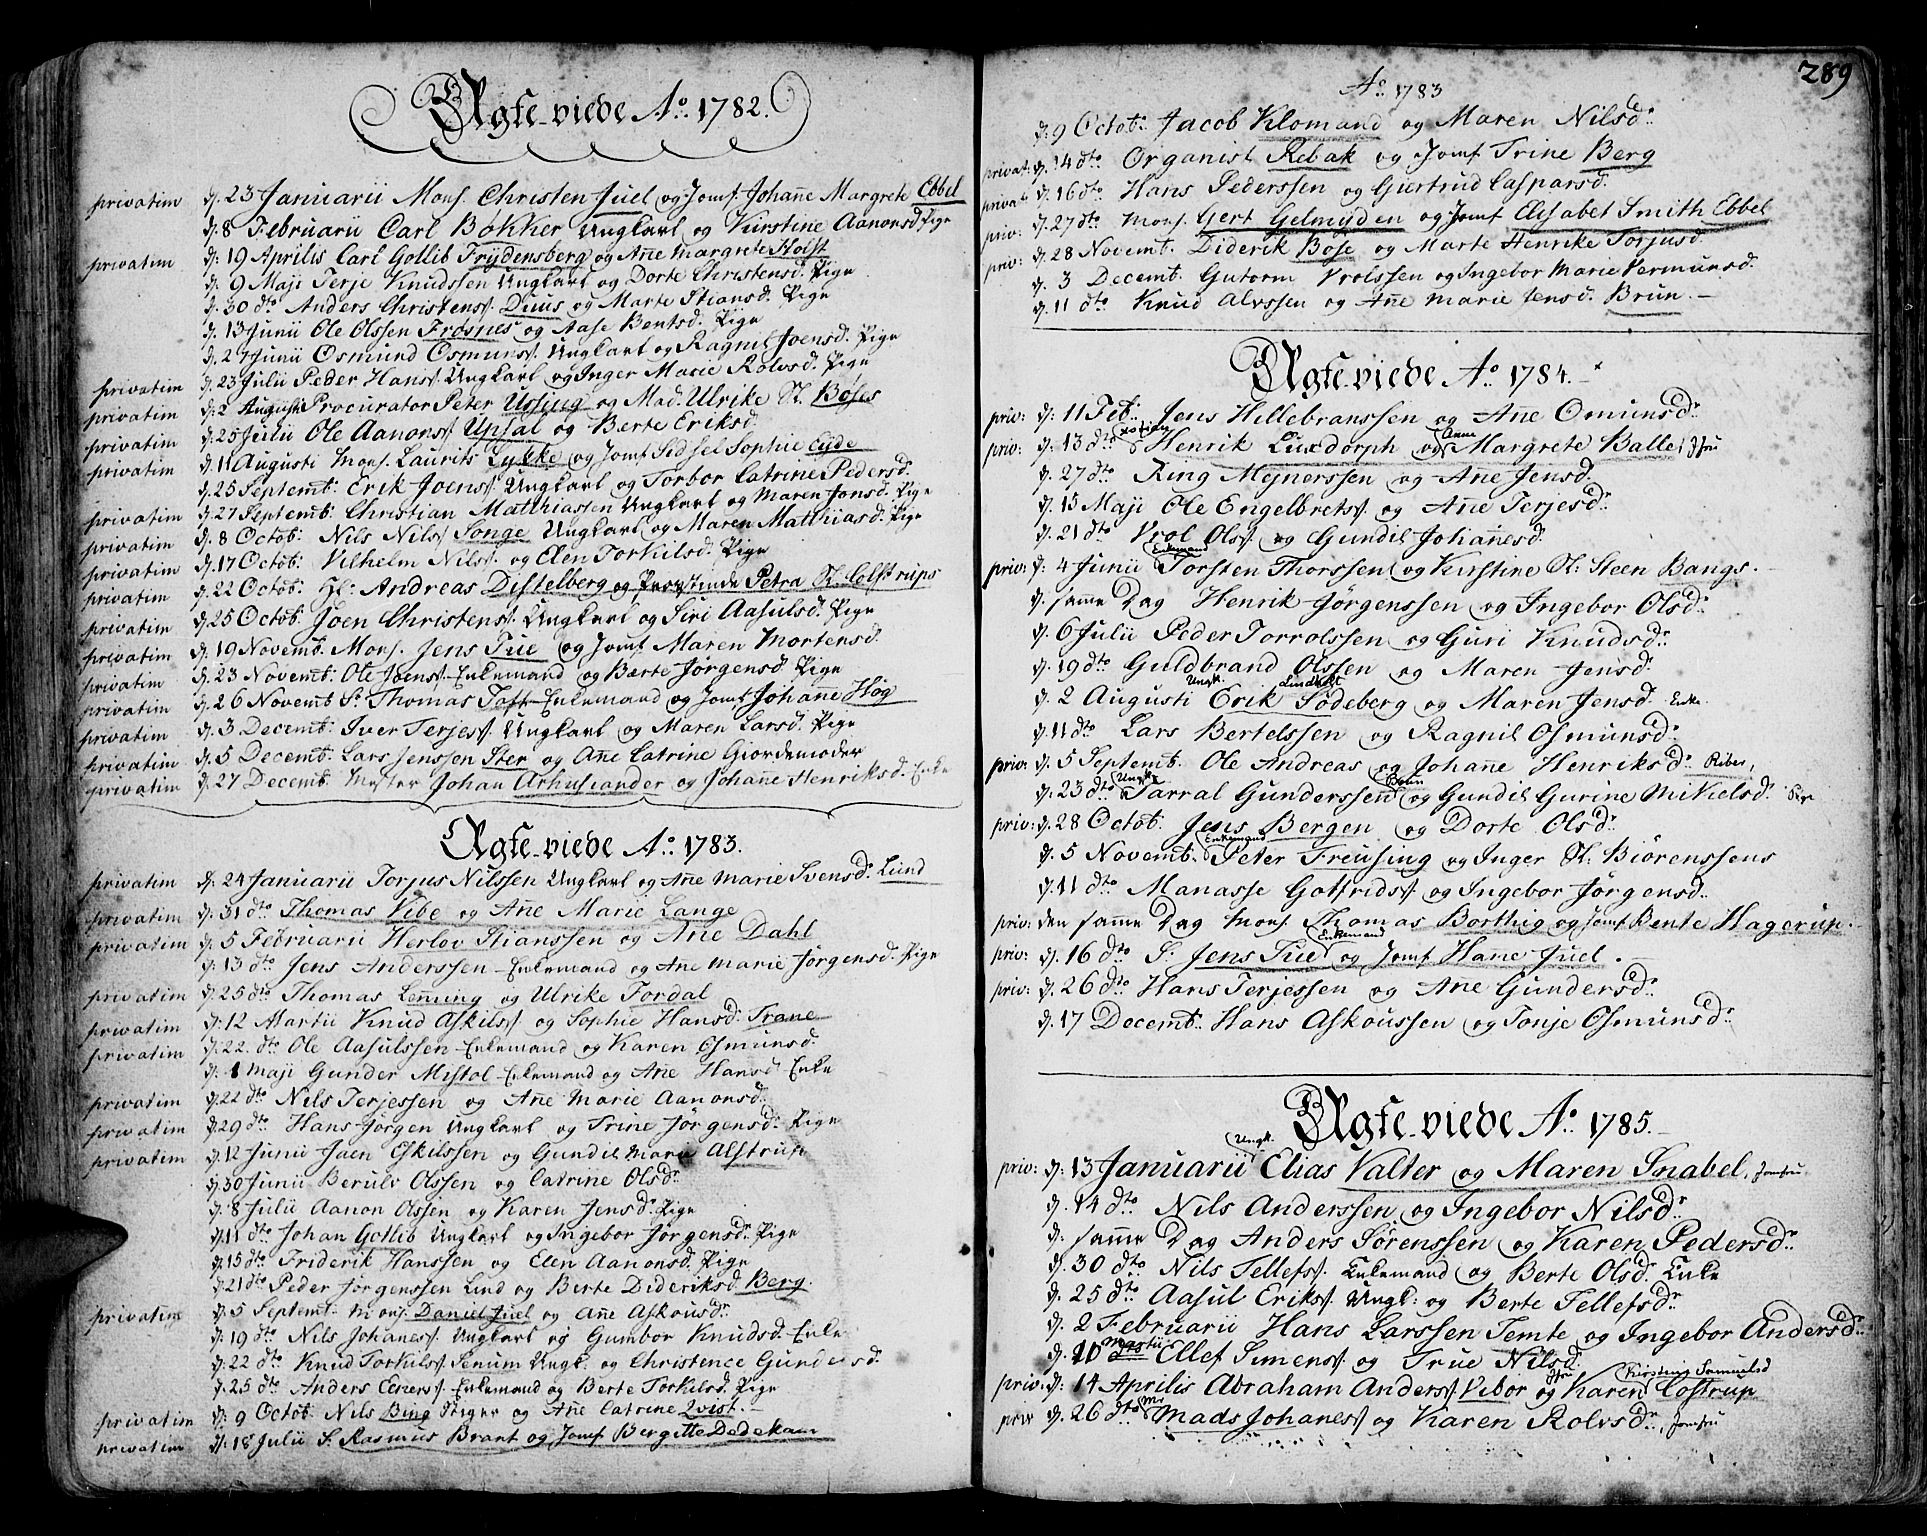 Ægte-viede Ao. 1782.
privatim d. 23 Januarii Mons. Christen Juel og Jomf. Johañe Margrete Ebbel
d. 8 Februarii Carl Bøkker Ungkarl og Kirstine Aanonsd. Pige
privatim d. 19 Aprilis Carl Gollib Frydensberg og Añe Margrete Holst
d. 9 Maji Terje Knudssen Ungkarl og Dorte Christensd. Pige
d. 30 dto Anders Christens. Duus og Marte Stiansd. Pige
d. 13 Junii Ole Olssen Frosnes og Aase Bentsd. Pige
d. 27 Junii Osmund Osmuns. Ungkarl og Ragnil Joensd. Pige
privatim d. 23 Julii Peder Hans. Ungkarl og Inger Marie Rolvsd. Pige
privatim d. 2 Augusti Procurator Peter Ussing og Mad. Ulrike Sl. Boses
privatim d. 25 Julii Ole Aanons. Upsal og Berte Eriksd.
privatim d. 11 Augusti Mons. Laurits Lykke og Jomf. Sidsel Sophie Eyde
d. 25 Septemb. Erik Joens. Ungkarl og Torbor Catrine Pedersd.
privatim d. 27 Septemb. Christian Matthiassen Ungkarl og Maren Jansd. Pige
privatim d. 8 Octob. Nils Nils. Songe Ungkarl og Maren Matthiasd. Pige
privatim d. 17 Octob. Vilhelm Nils. og Elen Torkilsd. Pige
privatim d. 22 Octob. Hr. Andreas Distelberg og Provstinde Petra Sl. Colstrups
privatim d. 25 Octob. Joen Christens. Ungkarl og Siri Aasulsd. Pige
privatim d. 19 Novemb. Mons. Jens Tue og Jomf. Maren Mortensd.
privatim d. 23 Novemb. Ole Joens. Enkemand og Bærte Jørgensd. Pige
privatim d. 26 Novemb. Sr. Thomas Toft Enkemand og Jomf. Johañe Høg
privatim d. 3 Decemb. Iver Terjes. Ungkarl og Maren Larsd. Pige
privatim d. 5 Decemb. Lars Jenssen Ster og Añe Catrine Giordemoder
privatim d. 27 Decemb. Mester Johan Arhusiander og Johañe Henriksd. Enke
Ægte-viede Ao. 1783.
privatim d. 24 Januarii Torjus Nilssen Ungkarl og Añe Marie Svensd. Lund
privatim d. 31 dto Thomas Vibe og Añe Marie Lange
privatim d. 5 Februarii Herlov Stianssen og Añe Dahl
d. 13 dto Jens Anderssen Enkemand og Añe Marie Jørgensd. Pige
privatim d. 25 dto Thomas Leñing og Ulrike Fordal
privatim d. 12 Martii Knud Askils. og Sophie Hansd. Trane
privatim d. 22 dto Ole Aasulssen Enkemand og Karen Osmunsd.
d. 1 Maji Gunder Mistol Enkemand og Añe Hansd. Enke
privatim d. 22 dto Nils Terjessen og Añe Marie Aanonsd.
privatim d. 29 dto Hans Jørgen Ungkarl og Trine Jørgensd. Pige
privatim d. 12 Junii Joen Eskilssen og Gundil Marie Alstrup
d. 30 Junii Berulv Olssen og Catrine Olsd.
d. 8 Julii Aanon Olssen og Karen Jensd. Pige
d. 11 dto Johan Gotlib Ungkarl og Ingebor Jørgensd. Pige
d. 15 dto Friderik Hanssen og Elen Aanonsd. Pige
d. 21 dto Peder Jørgenssen Lind og Berte Dideriksd. Berg.
privatim d. 5 Septemb. Mons. Daniel Juel og Añe Askousd.
d. 19 dto Nils Johanes. Ungkarl og Gumbor Knudsd. Enke
d. 22 dto Knud Torkils. Senum Ungk. og Christence Gundersd.
d. 25 dto Anders Eeners. Enkemand og Berte Torkilsd. Pige
privatim d. 9 Octob. Nils Bing og Añe Catrine Qvist.
privatim d. 18 Julii S. Rasmus Brant og Jomf. Bergitte Dedekam
289
Ao. 1783
d. 9 Octob. Jacob Klomand og Maren Nilsd.
privat: d. 14 dto Organist Rebak og Jomf. Trine Berg
privat: d. 16 dto Hans Pederssen og Giertrud Caspersd.
priv: d. 27 dto Mons. Gert Gelmyden og Jomf. Elisabet Smith Ebbel
priv: d. 28 Novemb. Diderik Bose og Marte Henrike Torjusd.
d. 3 Decemb. Gutorm Vrolssen og Ingebor Marie Vermunsd.
d. 11 dto Knud Alvssen og Añe Marie Jensd. Brun.
Ægte-viede Ao. 1784.
priv: d. 11 Feb. Jens Hillebranssen og Añe Osmunsd.
priv: d. 13 dto Henrik Luxdorph og Anna Margrete Balle, Jfru
d. 27 dto Ring Mejnerssen og Añe Jensd.
d. 15 Maji Ole Engelbrets. og Añe Terjesd.
d. 21 dto Vrol Ols. og Gundil Johañesd.
Enkemand
priv: d. 4 Junii Torsten Thorssen og Kirstine Sl. Steen Bangs.
d. samme Dag Henrik Jørgenssen og Ingebor Olsd.
d. 6 Julii Peder Torrolssen og Guri Knudsd.
d. 19 dto Guldbrand Olssen og Maren Jensd.
Ungk. Lindholt
d. 2 Augusti Erik Sødeberg og Maren Jensd. Enke.
d. 11 dto Lars Bertelssen og Ragnil Osmunsd.
priv: d. 5 Septemb. Ole Andreas og Johañe Henriksd. Riber,
Ungk. Brun
d. 23 dto Tarral Gunderssen og Gundil Gurine Mikielsd.
priv: d. 28 Octob. Jens Bergen og Dorte Olsd.
Enkemand
d. 5 Novemb. Peter Freusing og Inger Sl. Biørenssens
d. 11 dto Manasse Gotfrids. og Ingebor Jørgensd.
priv: den samme Dag Mons. Thomas Borthig og Jomf. Bente Hagerup.
Enkemand
priv: d. 16 dto S. Jens Tue og Jomf. Hane Juel.
priv: d. 26 dto Hans Terjessen og Añe Gundersd.
d. 17 Decemb. Hans Askoussen og Tonje Osmunsd.
Ægte-viede Ao. 1785.
Ungk.
priv: d. 13 Januarii Elias Valter og Maren Snabel, Jomfru
d. 14 dto Nils Anderssen og Ingebor Nilsd.
d. samme Dag Anders Sørenssen og Karen Pedersd.
d. 30 dto Nils Tellefs. Enkemand og Berte Olsd. Enke
d. 25 dto Aasul Eriks. Ungk: og Berte Tellefsd.
d. 2 Februarii Hans Larssen Temte og Ingebor Andersd.
d. 10 Martii Ellef Simens. og True Nilsd.
Jfru Kirstine Samuelsd
priv. d. 14 Aprilis Abraham Anders. Vibor og Karen Costrup
priv d. 26 dto Mr Mads Johanes. og Karen Rolvsd., Jomfru